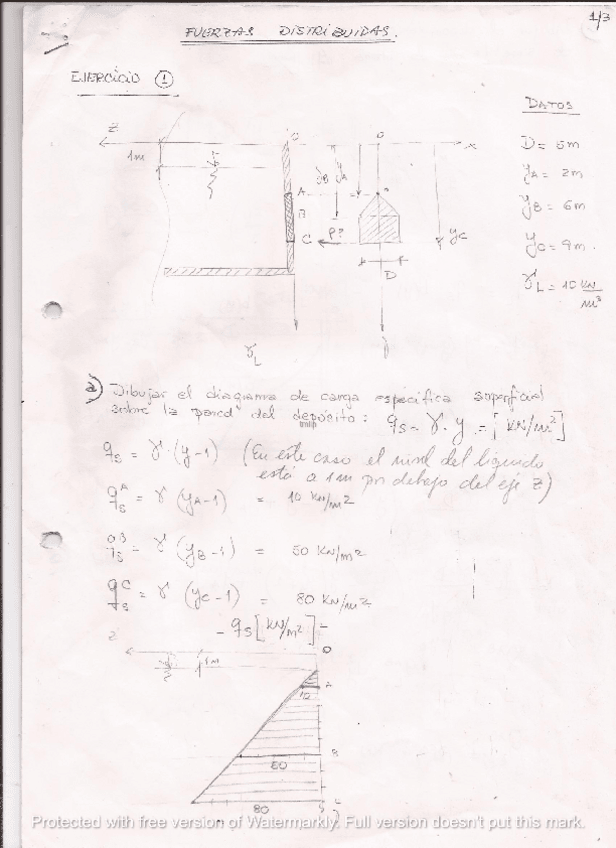 1/3
FUERZAS DISTRIBUIDAS.
EJERCICIO ①
DATOS
D = 5m
yA = 2m
yB = 6m
yC = 9m.
γL = 10 KN/m³
Z
1m
O
O
x
yB
yA
A
B
C
P?
yC
D
γL
a) Dibujar el diagrama de carga específica superficial
sobre la pared del depósito: qs = γ · y = [KN/m²]
qs = γ · (y-1) (En este caso el nivel del líquido
está a 1m por debajo del eje Z)
qsA = γ (yA-1) = 10 KN/m²
qsB = γ (yB-1) = 50 KN/m²
qsC = γ (yC-1) = 80 KN/m²
- qs [KN/m²]
Z
1m
O
A
10
80
Protected with free version of Watermarkly. Full version doesn't put this mark.